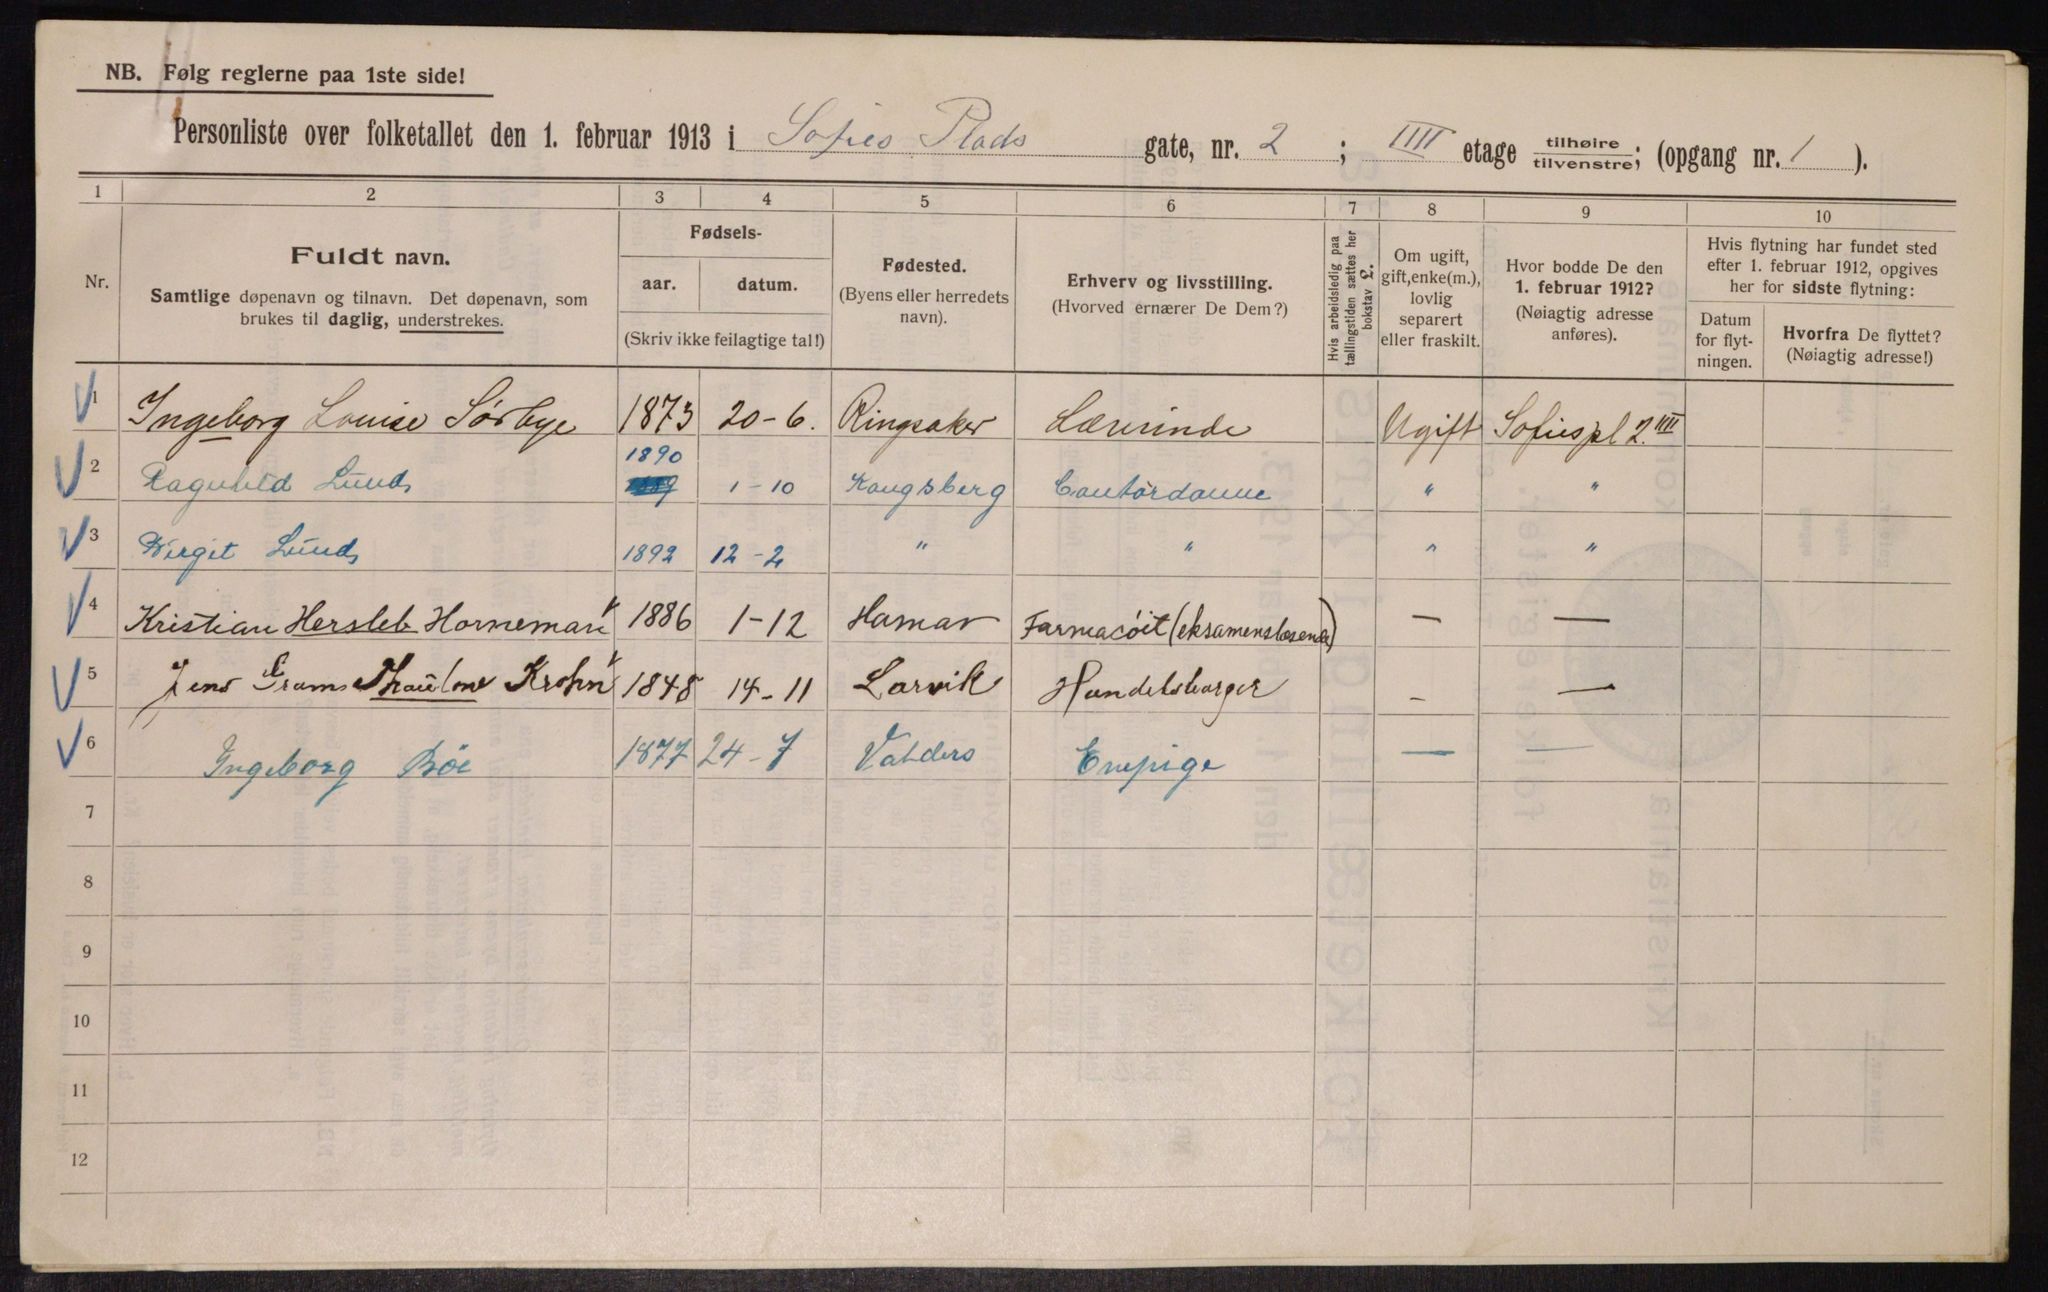 NB. Følg reglerne paa 1ste side!
Personliste over folketallet den 1. februar 1913 i Sofies Plads gate, nr. 2 ; IIII etage tilhøire/tilvenstre; (opgang nr. 1 ).
1 2 3 4 5 6 7 8 9 10
Nr.
Fuldt navn.
Samtlige døpenavn og tilnavn. Det døpenavn, som
brukes til daglig, understrekes.
Fødsels-
aar. datum.
(Skriv ikke feilagtige tal!)
Fødested.
(Byens eller herredets
navn).
Erhverv og livsstilling.
(Hvorved ernærer De Dem?)
Hvis arbeidsledig paa
tællingstiden sættes her
bokstav L.
Om ugift,
gift, enke(m.),
lovlig
separert
eller fraskilt.
Hvor bodde De den
1. februar 1912?
(Nøiagtig adresse
anføres).
Hvis flytning har fundet sted
efter 1. februar 1912, opgives
her for sidste flytning:
Datum
for flyt-
ningen.
Hvorfra De flyttet?
(Nøiagtig adresse!)
1 Ingeborg Louise Sørbye 1873 20-6. Ringsaker Lærerinde Ugift Sofiespl 2. IIII
2 Ragnhild Lund 1890 1-10 Kongsberg Contordame " "
3 Birgit Lund 1892 12-2 " " " "
4 Kristian Hersleb Horneman 1886 1-12 Hamar Farmacöit (eksamenslæsende) — —
5 Jens Gram Thaulow Krohn 1848 14-11 Larvik Handelsborger — —
6 Ingeborg Böe 1877 24-7 Valders Enepige — —
7
8
9
10
11
12